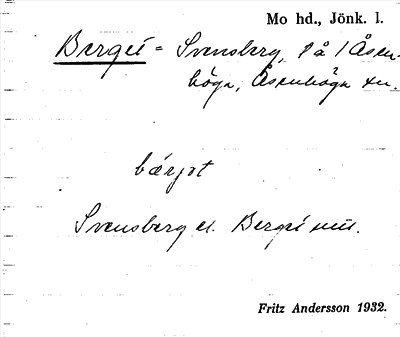 Mo hd., Jönk. l.
Berget = Svensberg, l å 1 Åsen-
höga, Åsenhöga sn.
bærjət
Svensberg el. Berget
Fritz Andersson 1932.